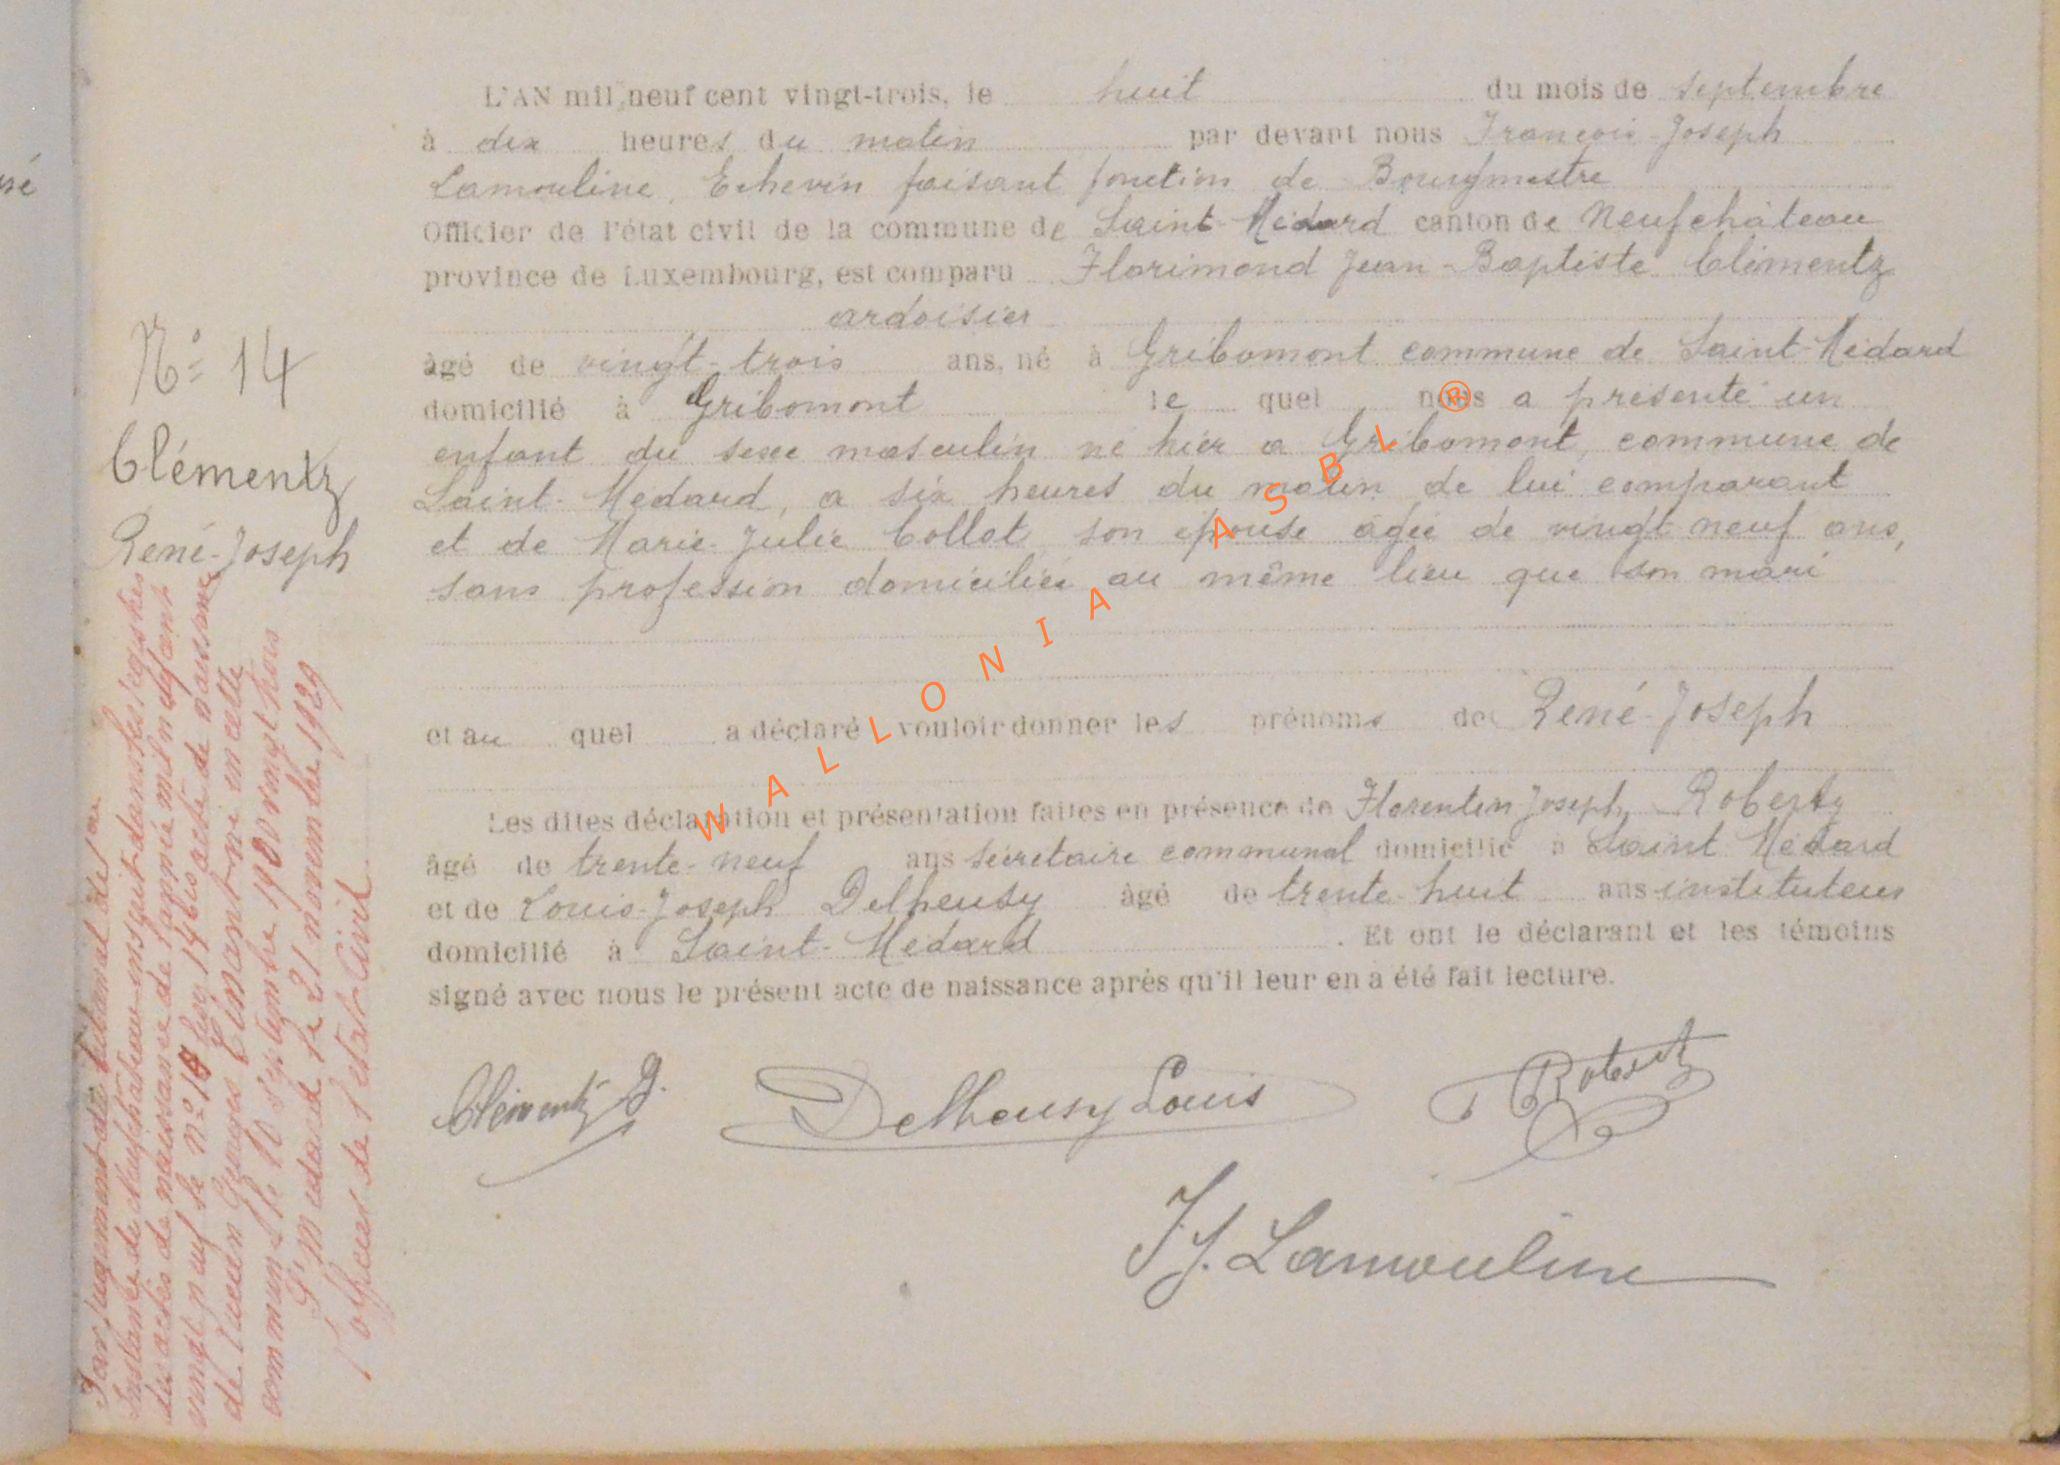 L'AN mil neuf cent vingt-trois, le huit du mois de septembre
à dix heures du matin par devant nous François-Joseph
Lamouline, Echevin faisant fonction de Bourgmestre
Officier de l'état civil de la commune de Saint-Médard canton de Neufchâteau
province de Luxembourg, est comparu Florimond Jean-Baptiste Clémentz
ardoisier
âgé de vingt-trois ans, né à Gribomont commune de Saint-Médard
domicilié à Gribomont le quel nous a présenté un
enfant du sexe masculin né hier a Gribomont, commune de
Saint-Médard, a six heures du matin de lui comparant
et de Marie-Julie Collot, son épouse âgée de vingt-neuf ans,
sans profession domiciliée au même lieu que son mari
et au quel a déclaré vouloir donner les prénoms de René-Joseph
Les dites déclaration et présentation faites en présence de Florentin Joseph Roberty
âgé de trente-neuf ans secrétaire communal domicilié à Saint Médard
et de Louis-Joseph Delheusy âgé de trente-huit ans instituteur
domicilié à Saint-Médard. Et ont le déclarant et les témoins
signé avec nous le présent acte de naissance après qu'il leur en a été fait lecture.
Delheusy Louis
F J. Lamouline
N° 14
Clémentz
René-Joseph
Par jugement du tribunal de 1re
Instance de Neufchâteau inscrit dans les registres
des actes de naissance de l'année mil neuf cent
vingt neuf le n° 14 bis acte de naissance
de Lucien Georges Clémentz né en cette
commune le 10 septembre 1900 vingt trois
St Médard le 21 novembre 1929
l'officier de l'état-civil
WALLONIA ASBL ®